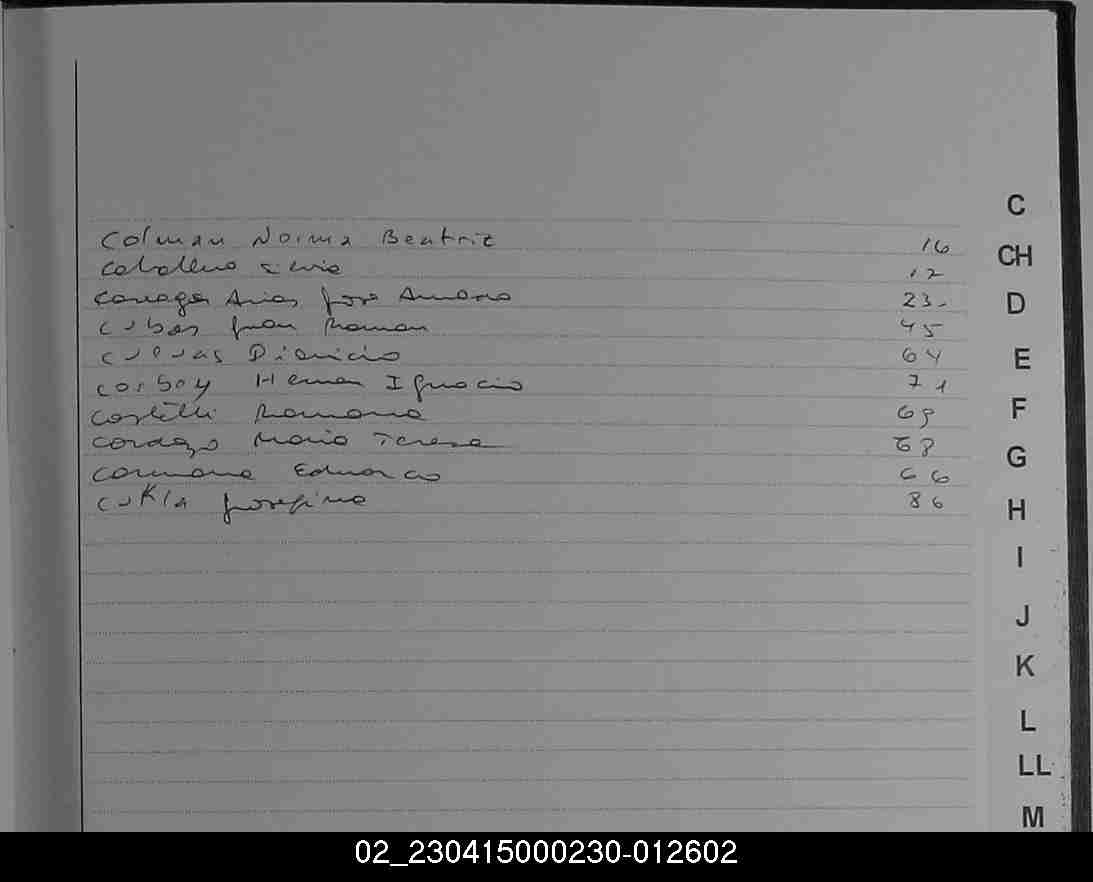 Colman Norma Beatriz 16
Caballero Silvio 12
Careaga Arias Jose Amario 23.
Cubas Juan Roman 45
Cuevas Dionicio 64
Corboy Hernan Ignacio 71
Costelli Ramona 69
Cordazo Maria Teresa 68
Carmona Eduardo 66
Cukla Josefina 86
C
CH
D
E
F
G
H
I
J
K
L
LL
M
02_230415000230-012602